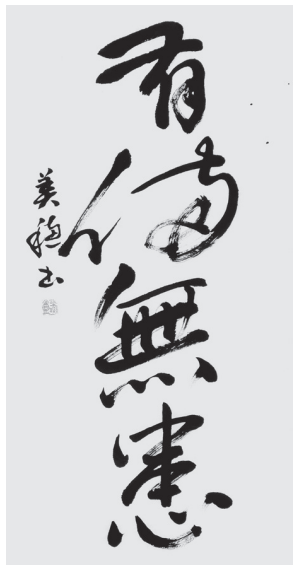 有備無患
美穂書